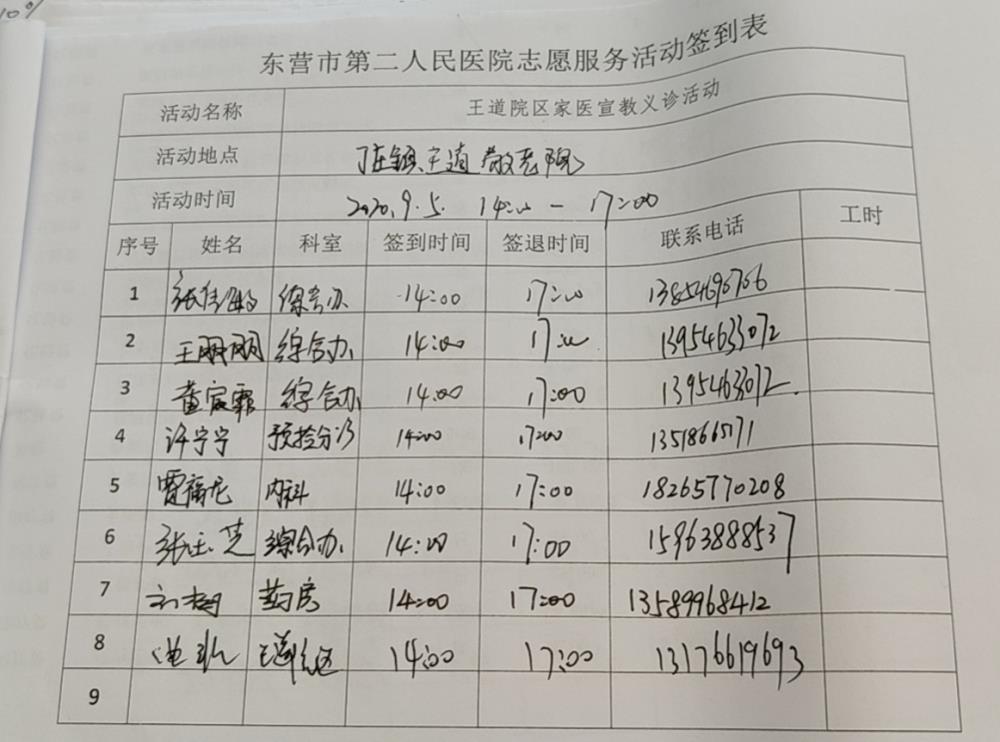 10%
东营市第二人民医院志愿服务活动签到表
活动名称 王道院区家医宣教义诊活动
活动地点 陈镇王道敬老院
活动时间 2020.9.5. 14:00 — 17:00
序号 姓名 科室 签到时间 签退时间 联系电话 工时
1 综合办 14:00 17:00 13854696766
2 王丽丽 综合办 14:00 17:00 13954633072
3 董宸霏 综合办 14:00 17:00 13954633072
4 许宁宁 预检分诊 14:00 17:00 13518665171
5 贾福龙 内科 14:00 17:00 18265770208
6 张玉芝 综合办 14:00 17:00 15963888537
7 药房 14:00 17:00 13589968412
8 王道院区 14:00 17:00 13176619693
9